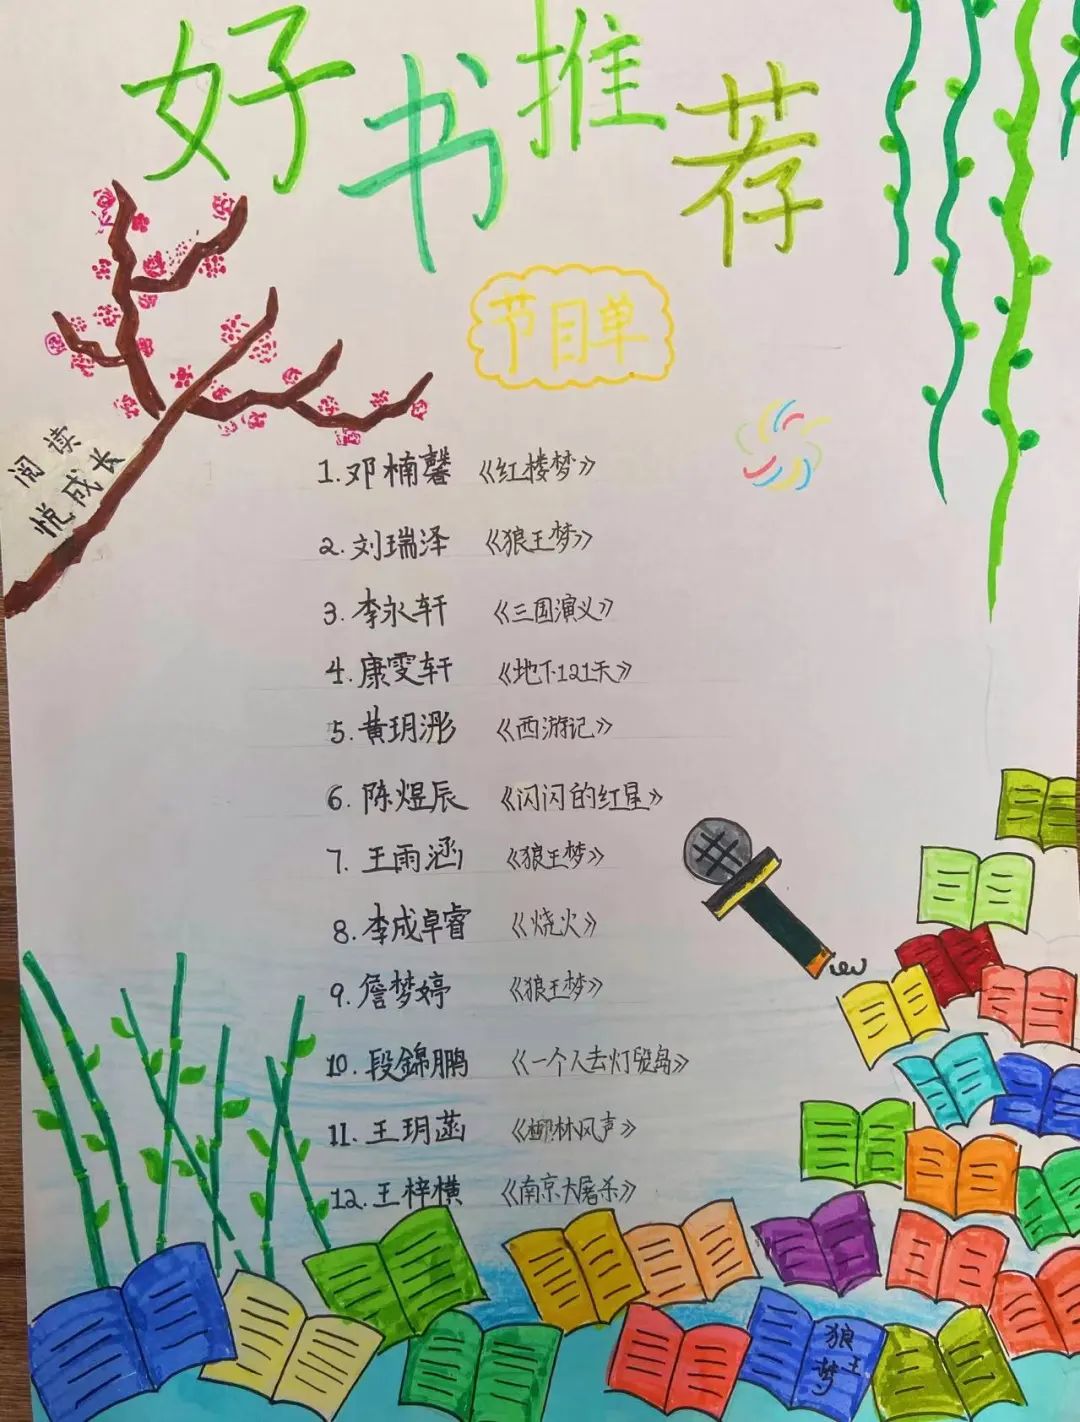 好书推荐
节目单
阅读
悦成长
1.邓楠馨 《红楼梦》
2.刘瑞泽 《狼王梦》
3.李永轩 《三国演义》
4.康雯轩 《地下121天》
5.黄玥浵 《西游记》
6.陈煜辰 《闪闪的红星》
7.王雨涵 《狼王梦》
8.李成卓睿 《烧火》
9.詹梦婷 《狼王梦》
10.段錦鹏 《一个人去灯碇岛》
11.王玥菡 《椰林风声》
12.王梓横 《南京大屠杀》
狼王
梦